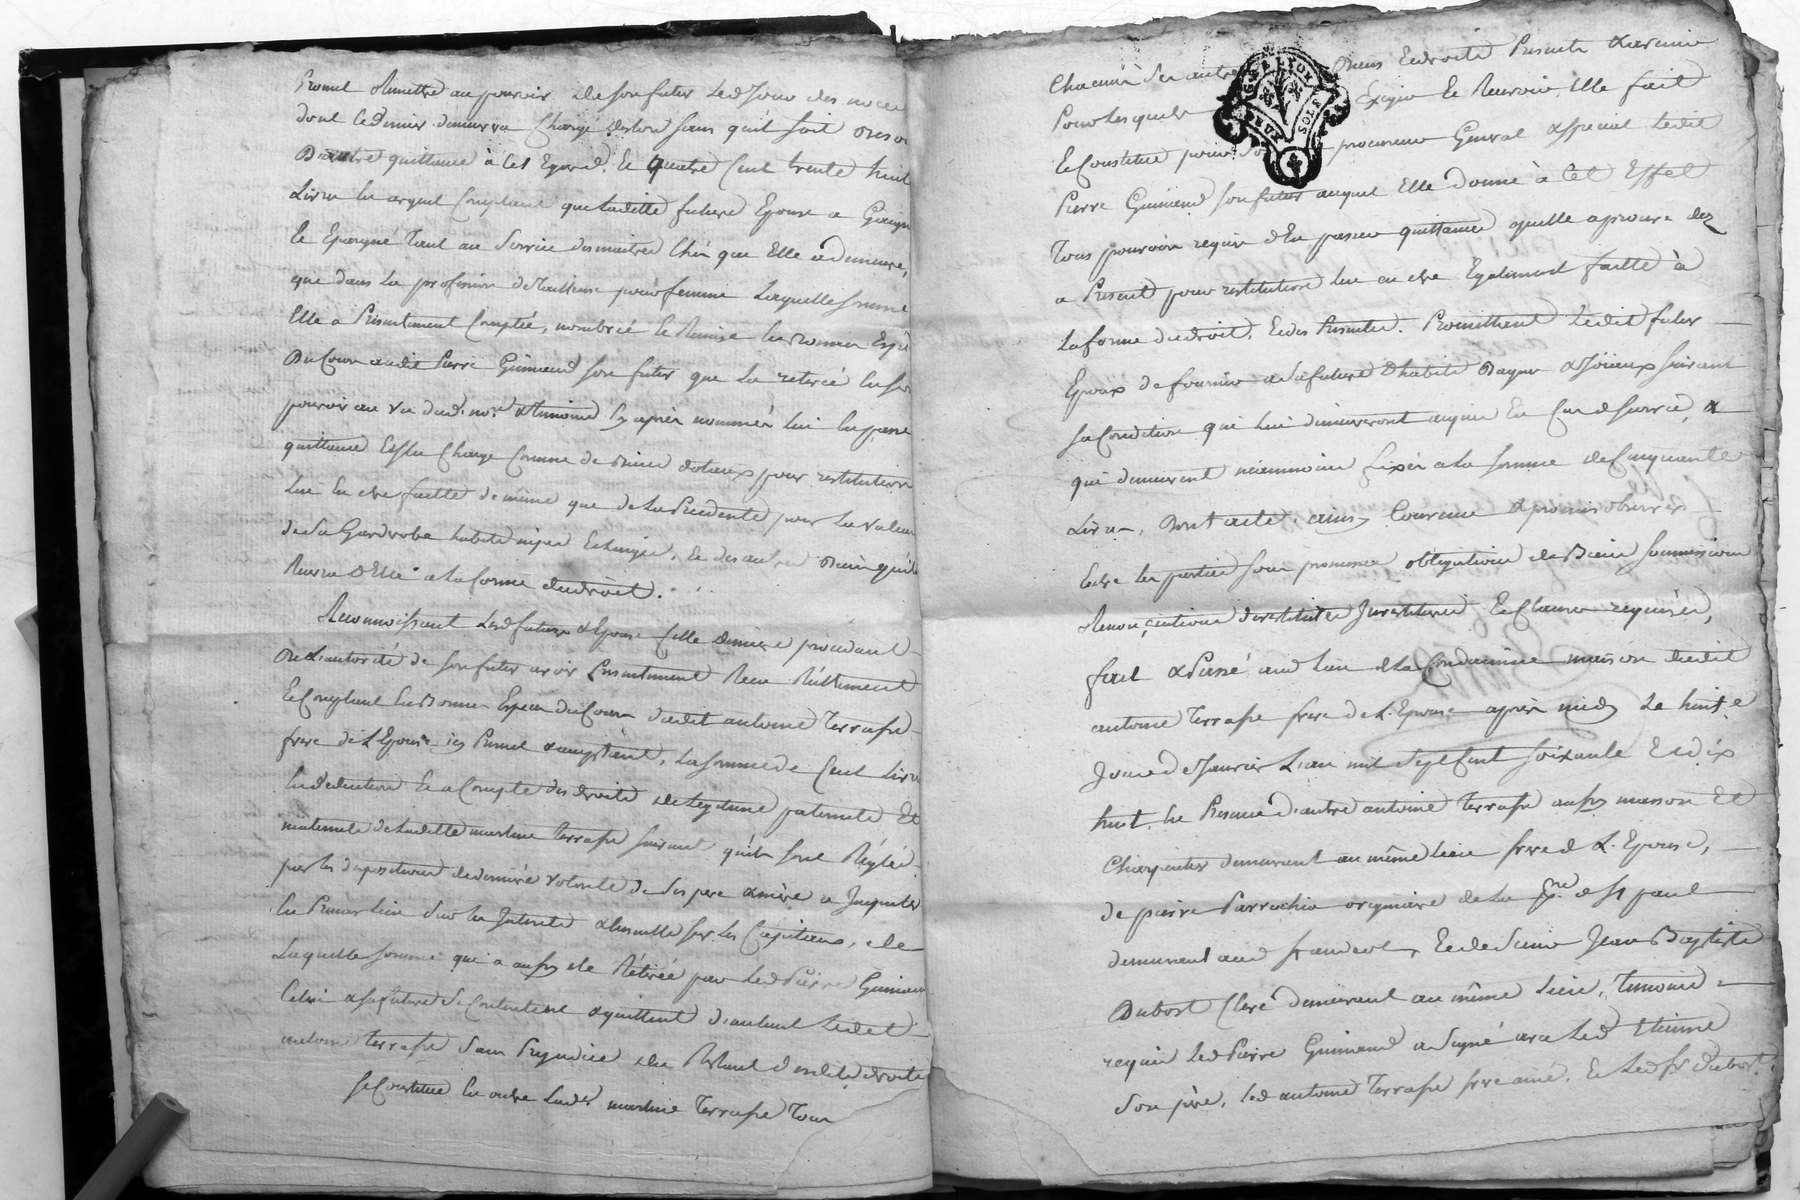 Promet Remettre au pouvoir de son futur led Jour des noces
dont ce dernier demeurera Chargé deslors sans qu'il soit besoin
D'autre quittance à cet Egard. et quatre Cent trente huit
Livres en argent Comptant que laditte future Epouse a Gaigné
et Epargné tant au Service des maitres Chés que Elle a demeuré,
que dans la profession de tailleuse pour femme Laquelle somme
Elle a Presentement Comptée, nombrée et Remise en Bonnes Espe
Du Cour audit Pierre Guimand son futur que la retirée en son
pouvoir au vu dud. no.re & temoins cy après nommés lui en passe
quittance Et s'en Charge Comme de deniers dotaux pour restitution
lui en etre faitte de même que de la Precedente pour la valeur
de sa Garderobe habits nipes Et linges, et des autres Biens qu'il
Recevra d'Elle a la forme du droit.
Reconnoissant Lesd futurs Epoux Celle derniere procedant
De L'autorité de son futur avoir Presentement Reçu Réellement
Et Comptant En Bonnes Especes du Cour dudit antoine Terrasse
frere de L'Epouse icy Present & acceptant, la somme de Cent Livres
En deduction Et a Compte des droits de Legitime paternels Et
maternels de laditte martine Terrasse suivant qu'ils sont Réglés
par les dispositions de derniere volonté de ses pere & mère a Imputer
En Premier Lieu Sur les Interets & Ensuitte sur les Capitaux, de
Laquelle somme qui a aussy été Rétirée par led Pierre Guimand
Celui & sa future Se Contentent & quittent d'autant Ledit
antoine Terrasse Sans Prejudice du Restant desdits droits
Se Constitue En outre Lad.e martine Terrasse Tous
Chacuns Ses autres Biens Et droits Presents & avenir
Pour lesquels Exiger Et Recevoir, Elle fait
Et Constitue pour So procureur General & special Ledit
Pierre Guimand son futur auquel Elle donne à Cet Effet
Tous pouvoirs requis d'En passer quittances qu'elle aprouve dez
a Present pour restitution lui en etre Egalement faitte à
La forme du droit, Et des Presentes. Promettant Ledit futur
Epoux de fournir a Sa future d'habits Bagues & Joiaux suivant
sa Condition qui lui demeureront aquis En Cas de survie, &
qui demeurent neanmoins fixés a la somme de Cinquante
Livres, Dont acte, ainsy Convenu & promis observer
Entre les parties sous promesse obligations de Biens soummissions
Renonçiations Et Clauses requises,
fait & Passé aud Lieu de la Condamine maison dudit
antoine Terrasse frere de L'Epouse après midy Le huit.e
Jour de Janvier L'an mil Sept Cent Soixante Et dix
huit, En Presence d'autre antoine Terrasse aussy masson Et
Charpentier demeurant au même Lieu frere de L'Epouse,
de pierre Parrochia originaire de la p.sse de St paul
demeurant aud , Et de Sieur Jean Baptiste
Dubost Clerc demeurant au même Lieu, Temoins
requis Led Pierre Guimand a Signé avec Led Etienne
Son père, led antoine Terrasse frere ainé, Et Led Sr Dubost,
G DE LYON
DEUX SOLS